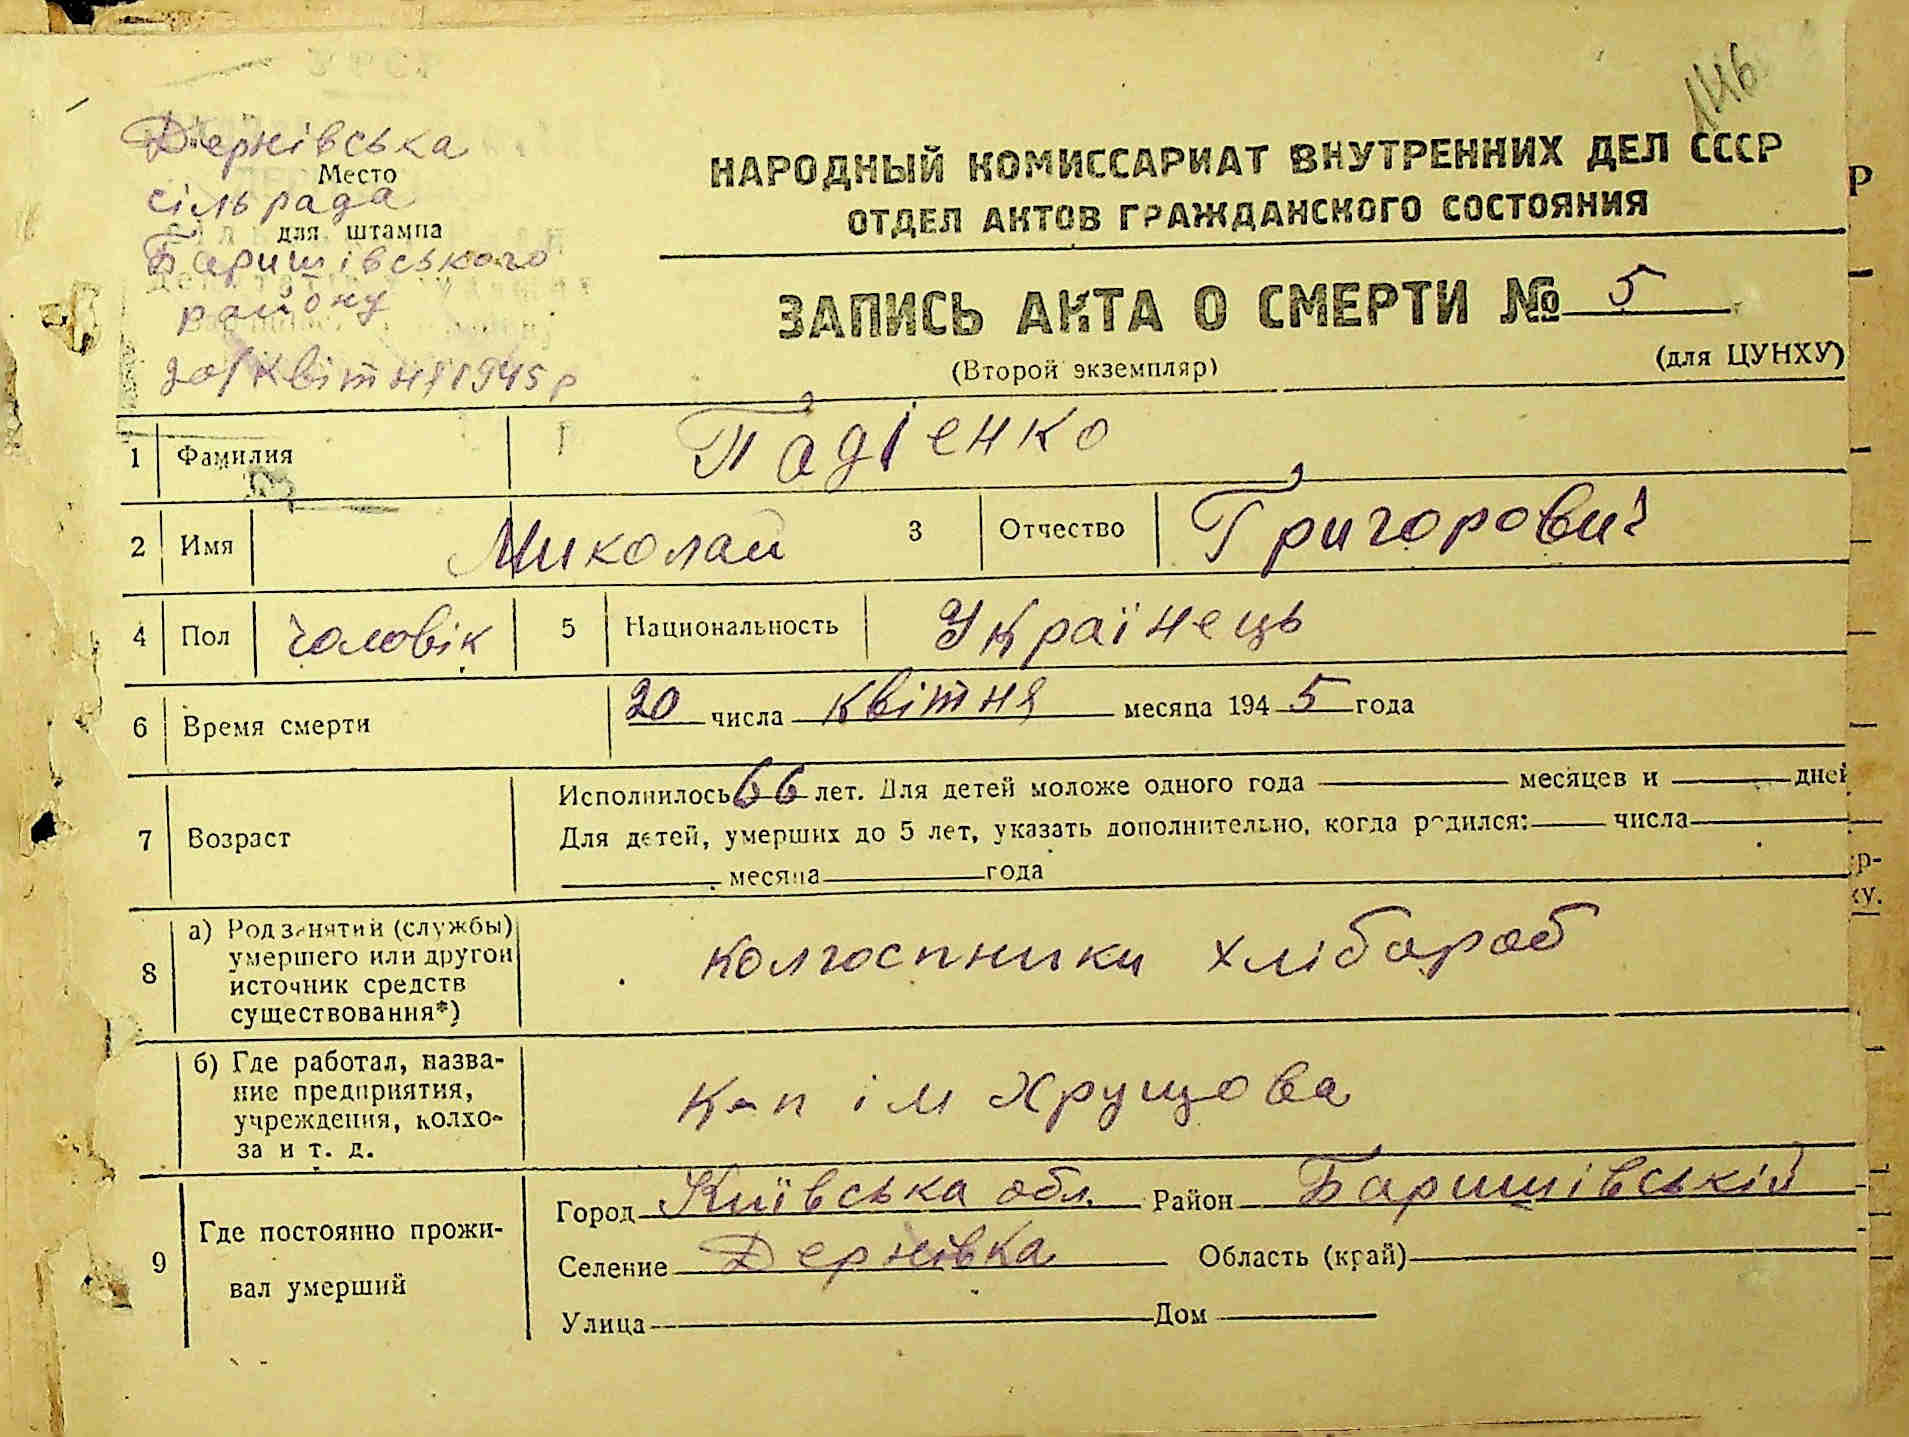 146
Дернівська
Место
сільрада
для штампа
Баришівського
району
20/квітня 1945р
НАРОДНЫЙ КОМИССАРИАТ ВНУТРЕННИХ ДЕЛ СССР
ОТДЕЛ АКТОВ ГРАЖДАНСКОГО СОСТОЯНИЯ
ЗАПИСЬ АКТА О СМЕРТИ № 5
(Второй экземпляр)
(для ЦУНХУ)
1 Фамилия Падієнко
2 Имя Миколай 3 Отчество Григорович
4 Пол чоловік 5 Национальность Українець
6 Время смерти 20 числа квітня месяца 1945 года
7 Возраст Исполнилось 66 лет. Для детей моложе одного года месяцев и дней
Для детей, умерших до 5 лет, указать дополнительно, когда родился: числа
месяца года
8 а) Род занятий (службы) умершего или другой источник средств существования*) колгоспники хлібороб
б) Где работал, название предприятия, учреждения, колхоза и т. д. к-п ім Хрущова
9 Где постоянно проживал умерший Город Київська обл. Район Баришівській
Селение Дернівка Область (край)
Улица Дом